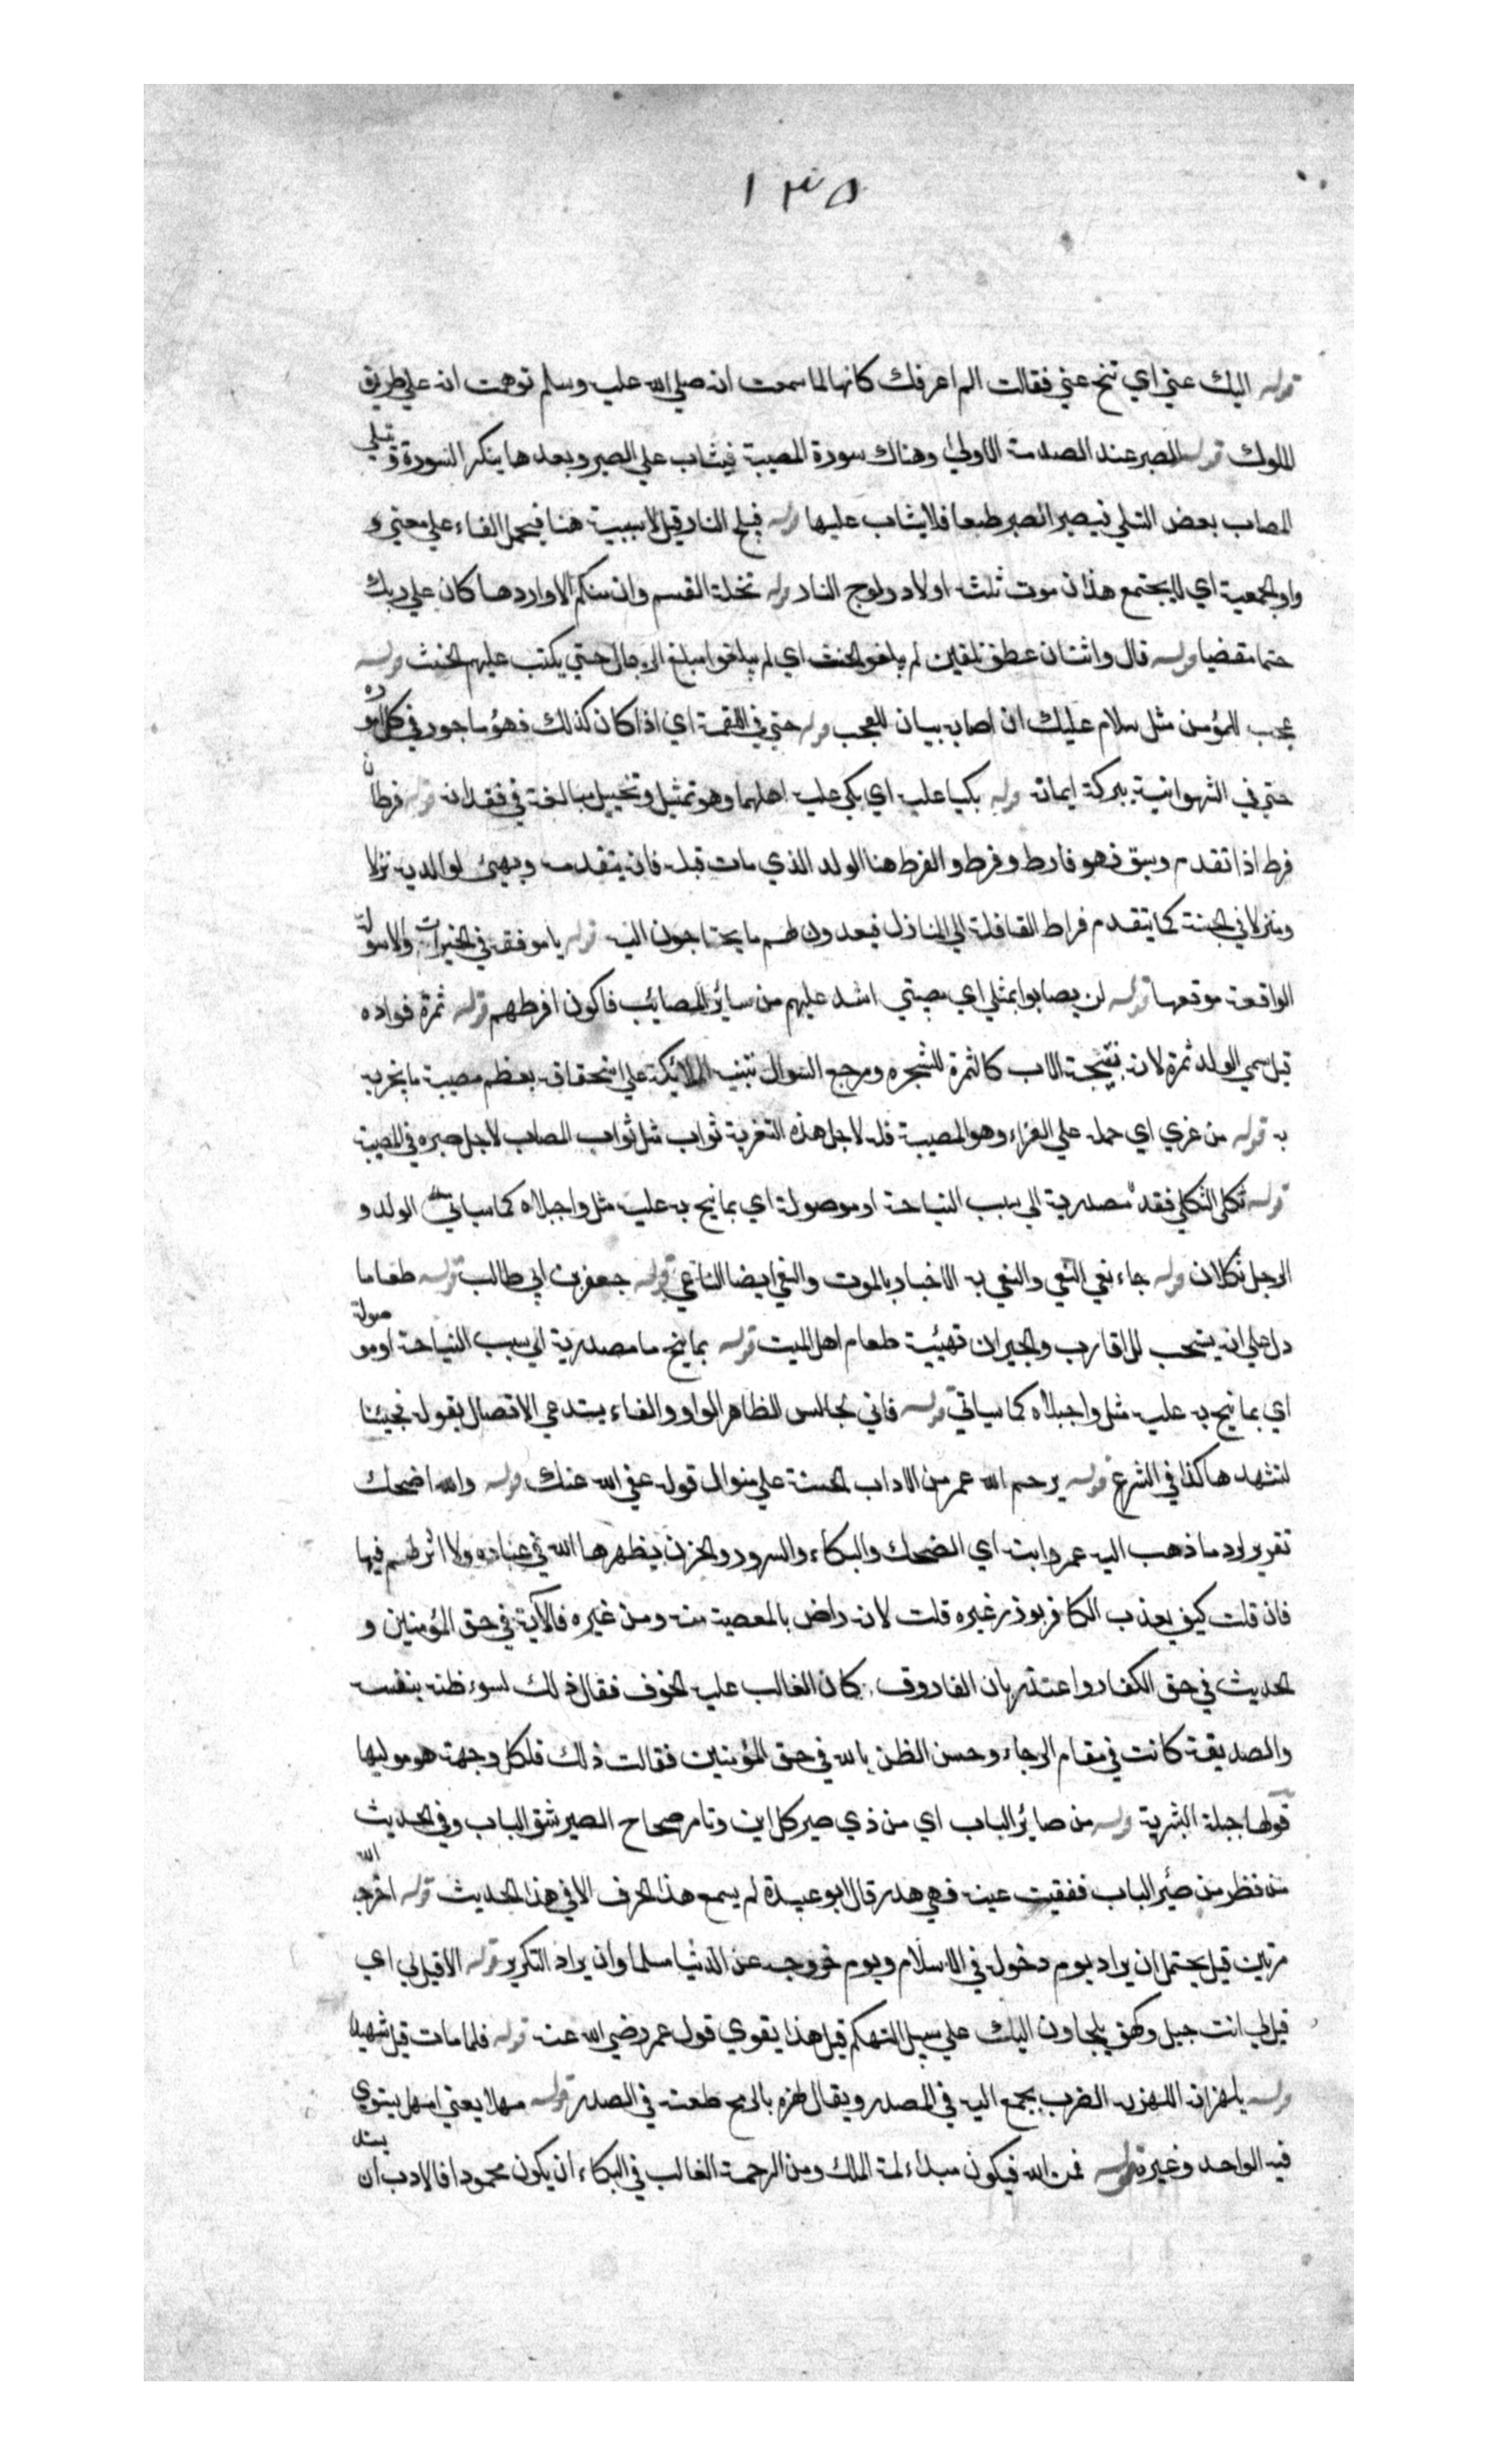 ١٣٥
قوله اليك عني اي تنح عني فقالت الم اعرفك كانها لما سمعت انه صلي الله عليه وسلم توهمت انه علي طريق
الملوك قوله الصبر عند الصدمة الاولي وهناك سورة المصيبة فيثاب علي الصبر وبعدها ينكر السورة و تسلي
المصاب بعض التسلي فيصير الصبر طبعا فلا يثاب عليها قوله فيلج النار قيل لا سببية هنا فيحمل الفاء علي معني و
واو الجمعية اي لا يجتمع هذان موت ثلثة اولاد ولوج النار قوله تحلة القسم وان منكم الا واردها كان علي ربك
حتما مقضيا قوله قال واثنان عطف تلقين لم يبلغوا الحنث اي لم يبلغوا مبلغ الرجال حتي يكتب عليهم الحنث قوله
عجب للمؤمن مثل سلام عليك ان اصابه بيان للعجب قوله حتي في اللقمة اي اذا كان كذلك فهو ماجور في كل اموره
حتي في الشهوانية ببركة ايمانه قوله بكيا عليه اي بكي عليه اهلهما وهو تمثيل وتخييل مبالغة في فقدانه قوله فرطان
فرط اذا تقدم وسبق فهو فارط وفرط والفرط هنا الولد الذي مات قبله فانه يتقدمه ويهيئ لوالديه نزلا
ومنزلا في الجنة كما يتقدم فراط القافلة الي المنازل فيعدون لهم ما يحتاجون اليه قوله يا موفقة في الخيرات والاسولة
الواقعة موقعها قوله لن يصابوا بمثلي اي مصيبتي اشد عليهم من سائر المصائب فاكون افرطهم قوله ثمرة فواده
قيل سمي الولد ثمرة لانه نتيجة الاب كالثمرة للشجره ومرجع السوال تنبيه الملائكة علي استحقاقه بعظم مصيبة ما يخزيه
به قوله من عزي اي حمله علي العزاء وهو المصيبة فله لاجل هذه التعزية ثواب مثل ثواب المصاب لاجل صبره في المصيبة
قوله ثكلي الثكلي فقد مصدرية الي سبب النياحة او موصولة اي بما نيح به عليه مثل واجبلاه كما سياتي الولد و
الرجل ثكلان قوله جاء نعي النعي والنعي به الاخبار بالموت والنعي ايضا الناعي قوله جعفر بن ابي طالب قوله طعاما
دل علي انه يستحب للاقارب والجيران تهيئية طعام اهل الميت قوله بما نيح ما مصدرية اي سبب النياحة او موصولة
اي بما نيح به عليه مثل واجبلاه كما سياتي قوله فاني لجالس الظاهر الواو والفاء يستدعي الاتصال بقوله فجيئنا
لنشهدها كذا في الشرع قوله يرحم الله عمر من الاداب الحسنة علي منوال قوله عفي الله عنك قوله والله اضحك
تقرير لرد ما ذهب اليه عمر وابنه اي الضحك والبكاء والسرور والحزن يظهرها الله في عباده ولا اثر لهم فيها
فان قلت كيف يعذب الكافر بوزر غيره قلت لانه راض بالمعصية منه ومن غيره فالآية في حق المؤمنين و
الحديث في حق الكفار واعتذر بان الفاروق كان الغالب عليه الخوف فقال ذلك لسوء ظنه بنفسه
والصديقة كانت في مقام الرجاء وحسن الظن بالله في حق المؤمنين فقالت ذلك فلكل وجهة هو موليها
قولها جبلة البشرية قوله من صائر الباب اي من ذي صير كلابن وتامر صحاح الصير شق الباب وفي الحديث
من نظر من صئر الباب ففقيت عينه فهي هدر قال ابو عبيدة لم يسمع هذا الحرف الا في هذا الحديث قوله اخرجه الله
مرتين قيل يحتمل ان يراد يوم دخوله في الاسلام ويوم خروجه عن الدنيا مسلما وان يراد التكرير قوله الا قيل لي اي
قيل لي انت جبل وكهف يلجاون اليك علي سبيل التهكم قيل هذا يقوي قول عمر رضي الله عنه قوله فلما مات قيل شهيدا
قوله يلهزانه اللهزه الضرب بجمع اليد في الصدر ويقال لهزه بالرمح طعنه في الصدر قوله مهلا يعني امهل يستوي
فيه الواحد وغيره قوله فمن الله فيكون مبداء لمة الملك ومن الرحمة الغالب في البكاء ان يكون محمودا فالادب ان يسند